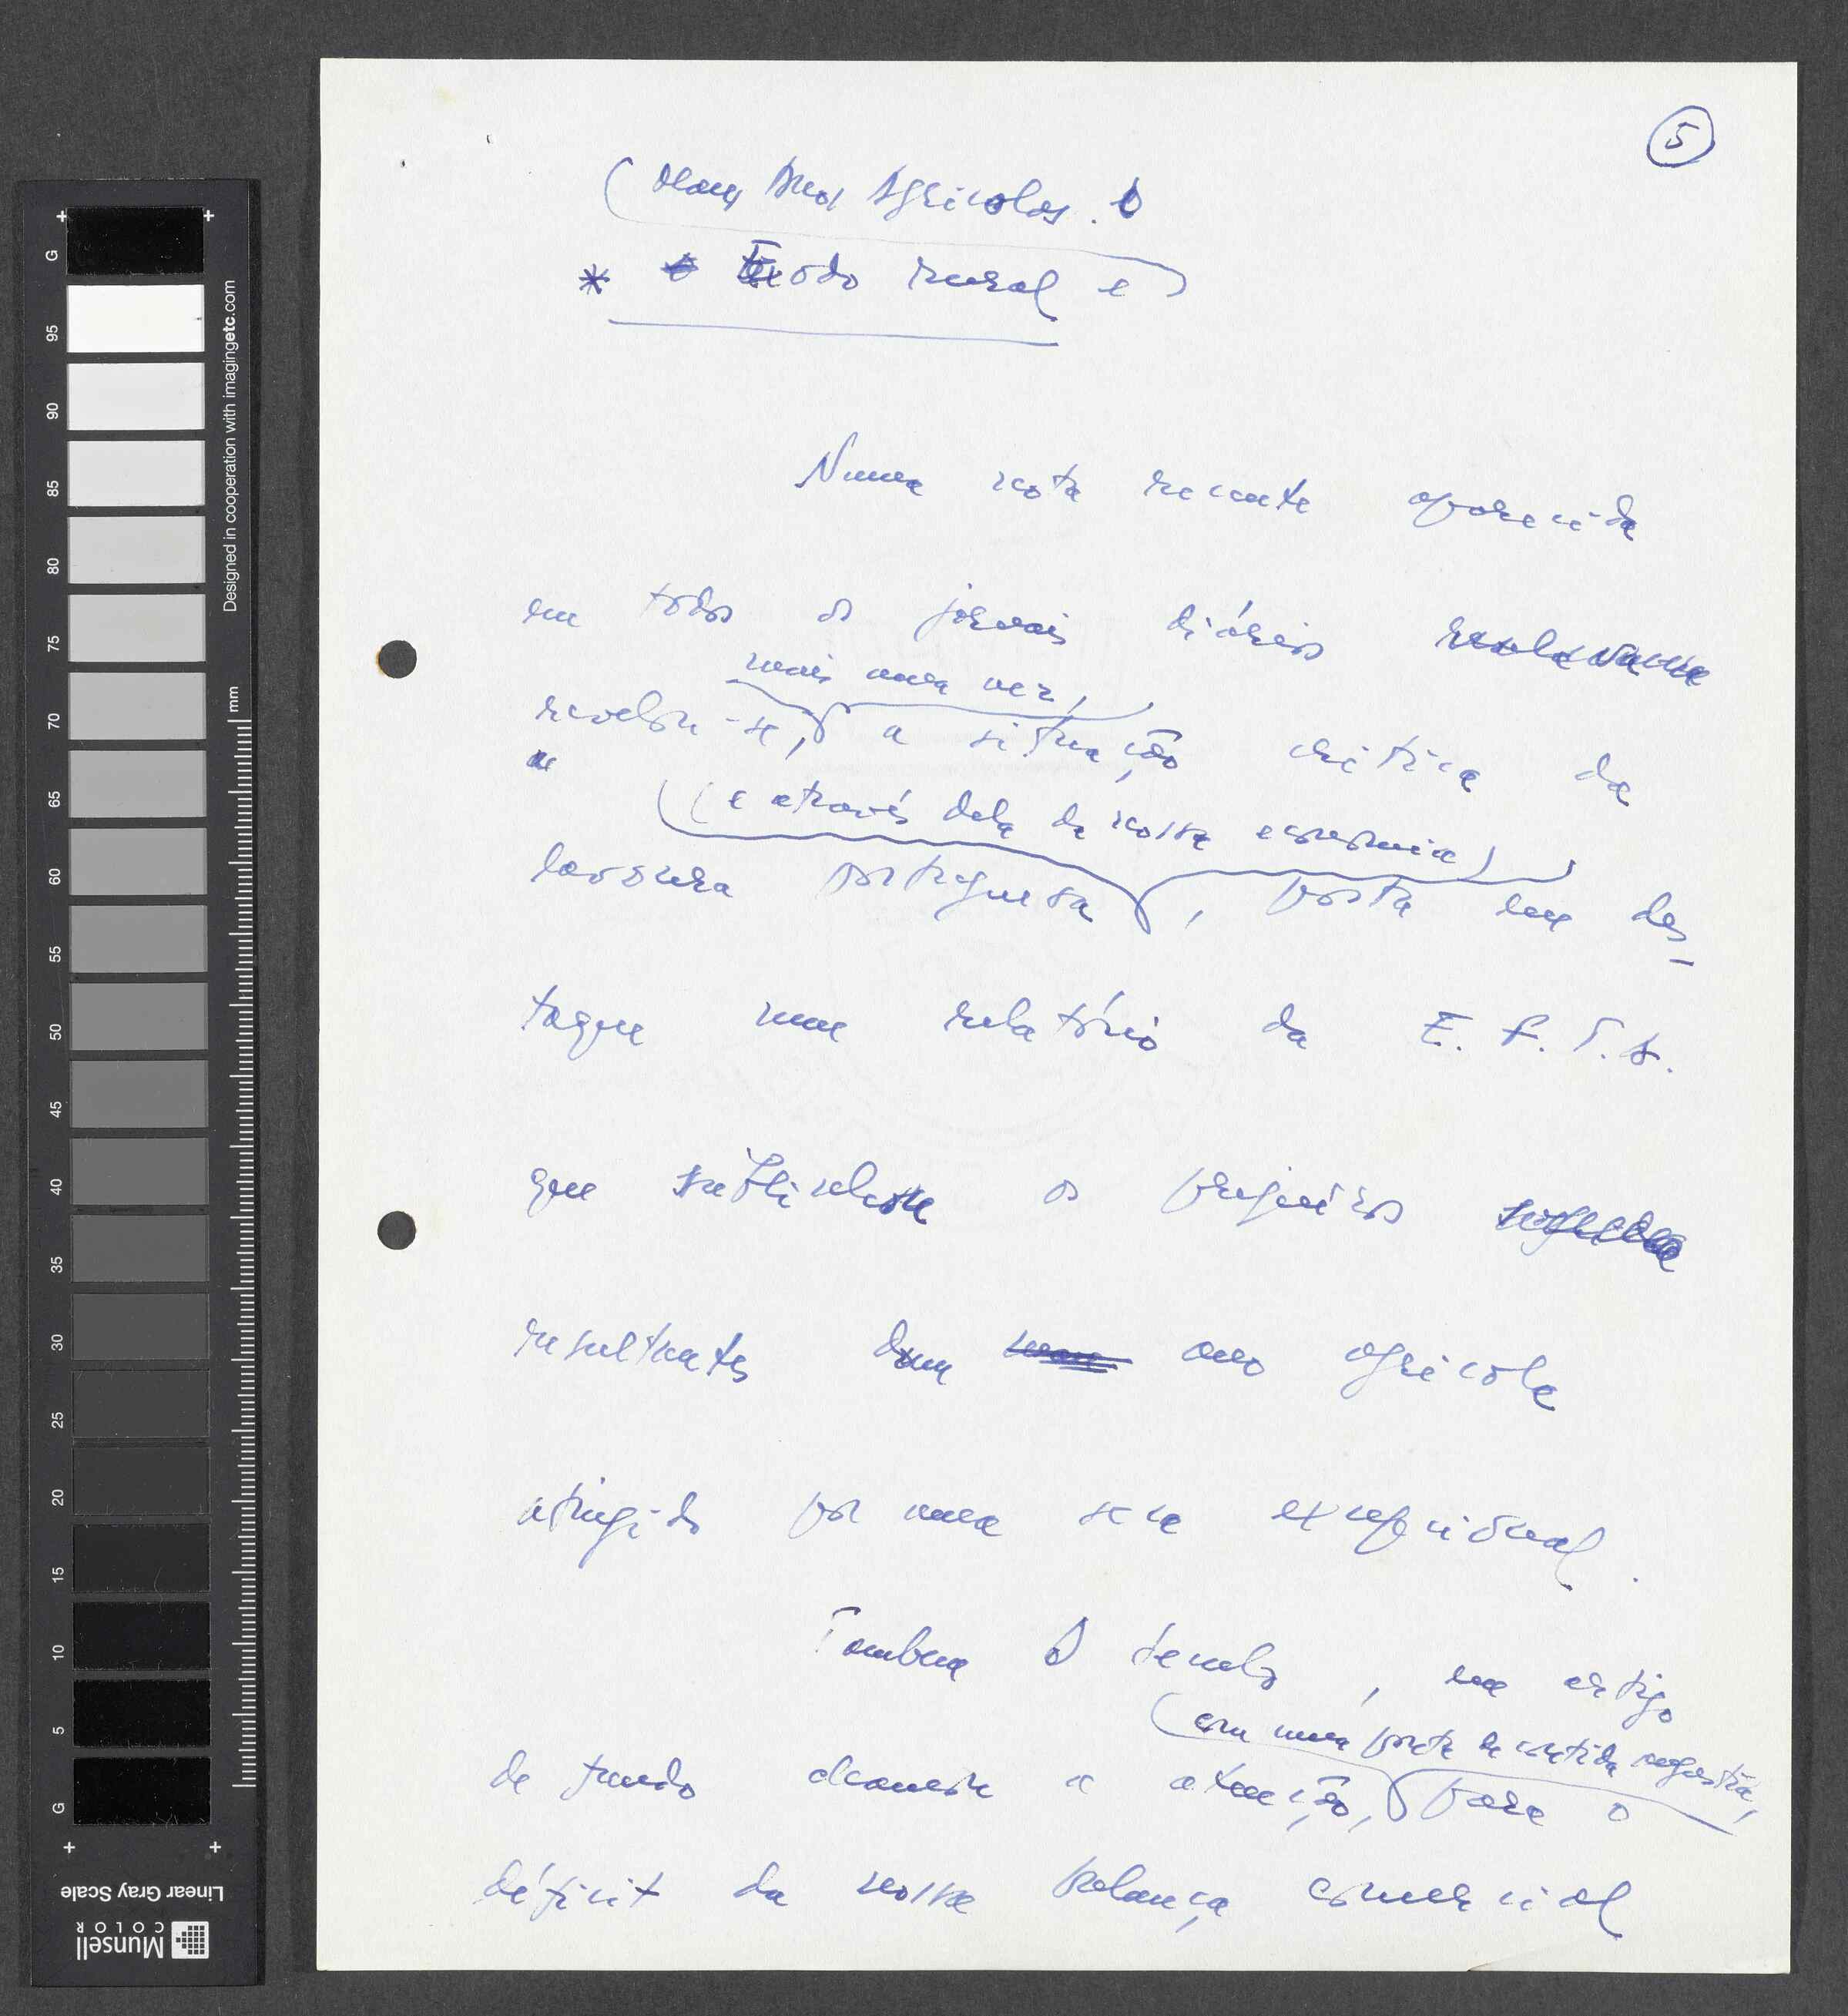 5
(Maus Anos Agrícolas. O
* Êxodo rural e
Numa nota recente aparecida
em todos os jornais diários
mais uma vez,
revelou-se, a situação crítica da
(e através dela da nossa economia)
lavoura portuguesa, posta em des-
taque num relatório da E. F. T. A.
que sublinha os prejuízos
resultantes dum ano agrícola
atingido por uma seca excepcional.
Também O Século, em artigo
com uma ponta de contida angústia,
de fundo chamou a atenção, para o
déficit da nossa balança comercial
G
95
90
85
80
75
70
65
60
55
50
45
40
35
30
25
20
15
10
5
G
mm
Designed in cooperation with imagingetc.com
Linear Gray Scale
Munsell
COLOR